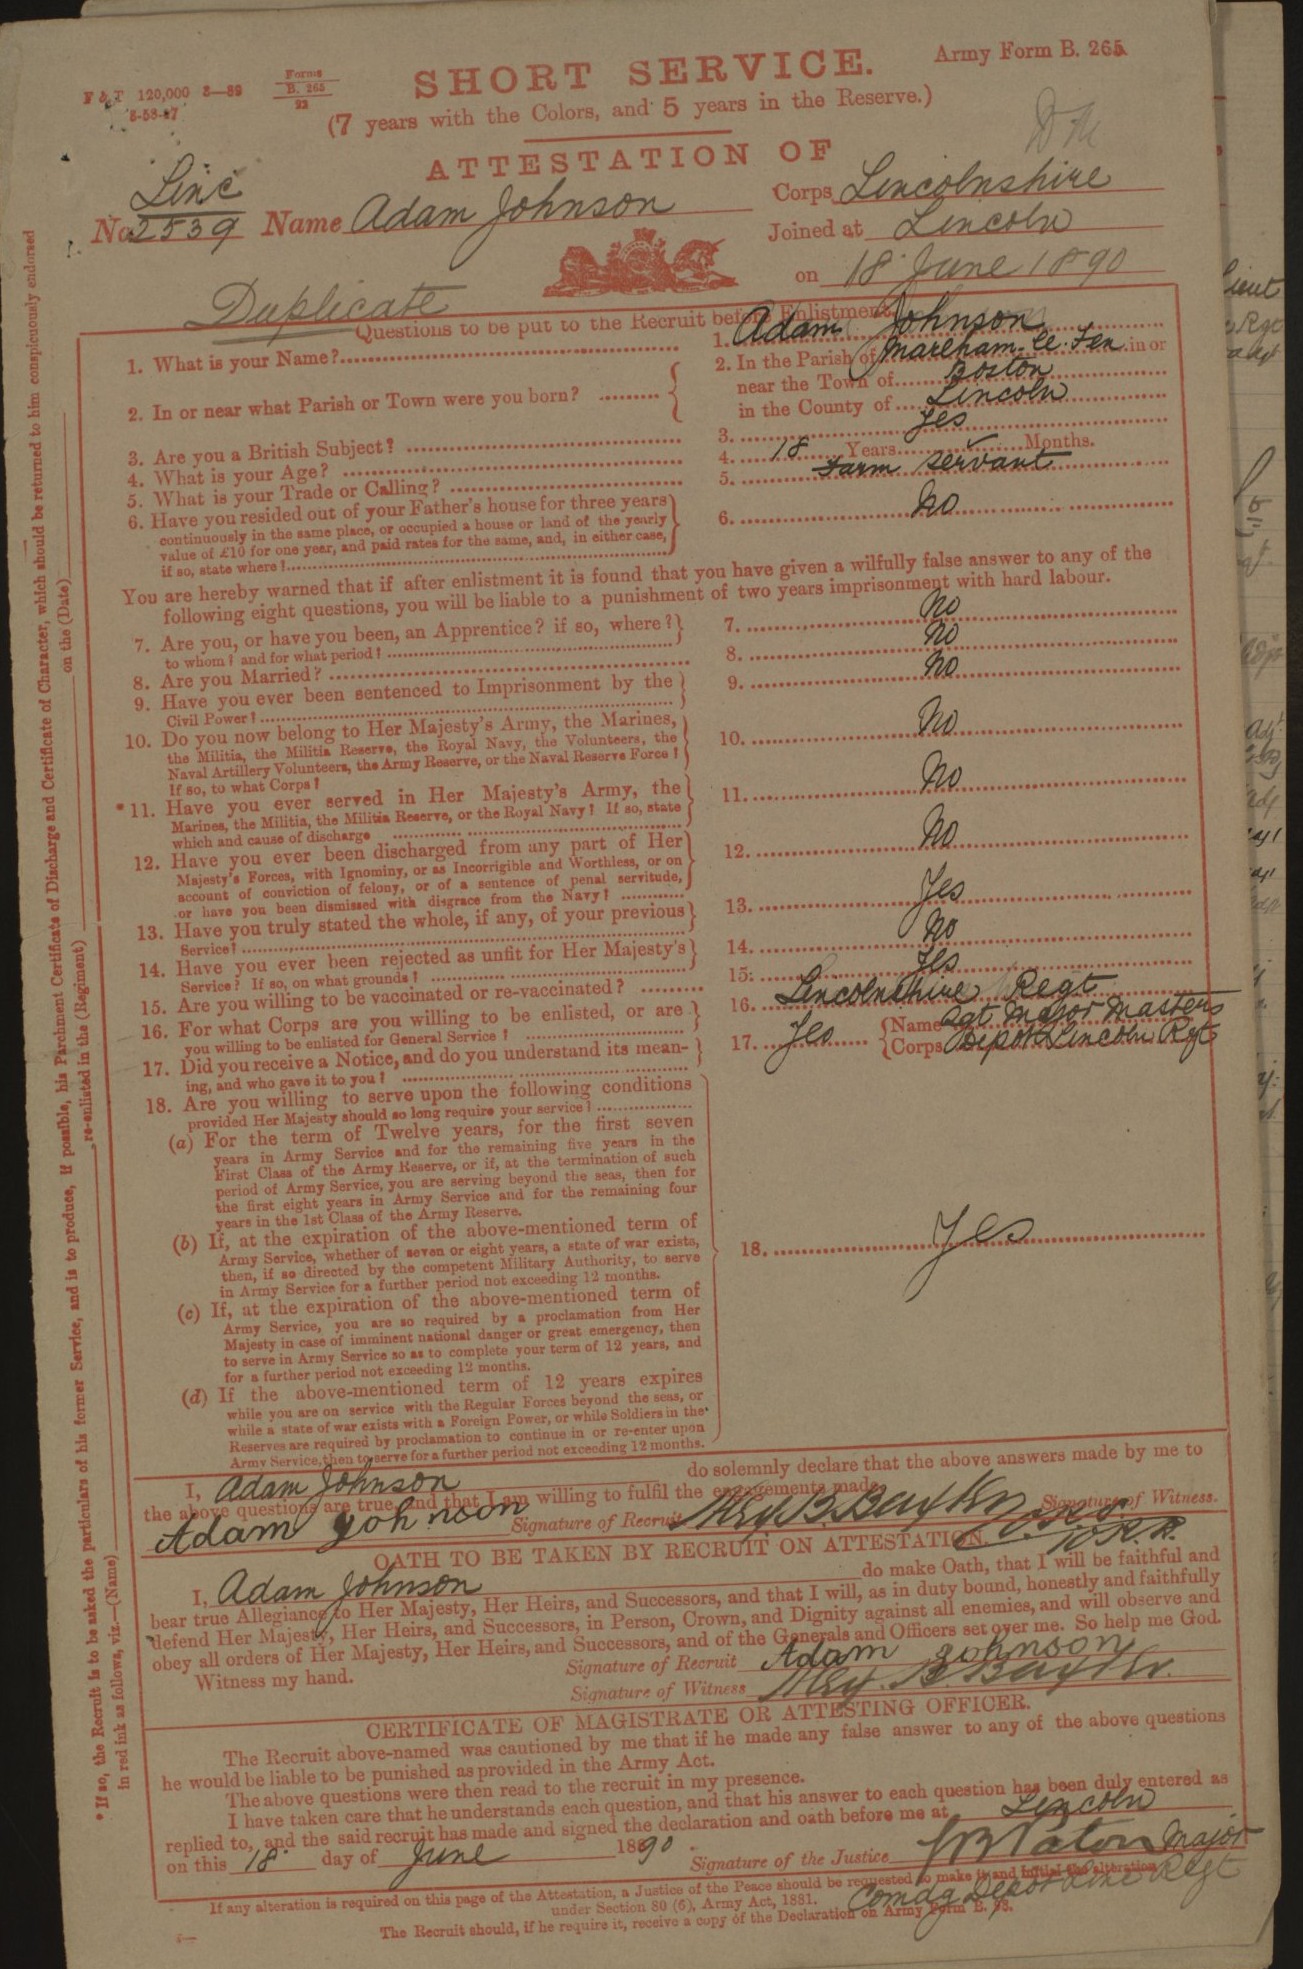 Army Form B. 265
F & T 120,000 3—89 Forms
B. 265
22
SHORT SERVICE.
(7 years with the Colors, and 5 years in the Reserve.)
ATTESTATION OF
Linc
No. 2539 Name Adam Johnson
Corps Lincolnshire
Joined at Lincoln
on 18 June 1890
Duplicate
Questions to be put to the Recruit before Enlistment.
1. What is your Name?
1. Adam Johnson
2. In or near what Parish or Town were you born?
2. In the Parish of Mareham-le-Fen in or
near the Town of Boston
in the County of Lincoln
3. Are you a British Subject?
3. Yes
4. What is your Age?
4. 18 Years Months.
5. What is your Trade or Calling?
5. Farm Servant
6. Have you resided out of your Father's house for three years
continuously in the same place, or occupied a house or land of the yearly
value of £10 for one year, and paid rates for the same, and, in either case,
if so, state where?
6. No
You are hereby warned that if after enlistment it is found that you have given a wilfully false answer to any of the
following eight questions, you will be liable to a punishment of two years imprisonment with hard labour.
7. Are you, or have you been, an Apprentice? if so, where?
to whom? and for what period?
7. No
8. Are you Married?
8. No
9. Have you ever been sentenced to Imprisonment by the
Civil Power?
9. No
10. Do you now belong to Her Majesty's Army, the Marines,
the Militia, the Militia Reserve, the Royal Navy, the Volunteers, the
Naval Artillery Volunteers, the Army Reserve, or the Naval Reserve Force?
If so, to what Corps?
10. No
*11. Have you ever served in Her Majesty's Army, the
Marines, the Militia, the Militia Reserve, or the Royal Navy? If so, state
which and cause of discharge
11. No
12. Have you ever been discharged from any part of Her
Majesty's Forces, with Ignominy, or as Incorrigible and Worthless, or on
account of conviction of felony, or of a sentence of penal servitude,
or have you been dismissed with disgrace from the Navy?
12. No
13. Have you truly stated the whole, if any, of your previous
Service?
13. Yes
14. Have you ever been rejected as unfit for Her Majesty's
Service? If so, on what grounds?
14. No
15. Are you willing to be vaccinated or re-vaccinated?
15. Yes
16. For what Corps are you willing to be enlisted, or are
you willing to be enlisted for General Service?
16. Lincolnshire Regt
17. Did you receive a Notice, and do you understand its mean-
ing, and who gave it to you?
17. Yes Name Sgt Major Masters
Corps Depot Lincoln Rgt
18. Are you willing to serve upon the following conditions
provided Her Majesty should so long require your service?
(a) For the term of Twelve years, for the first seven
years in Army Service and for the remaining five years in the
First Class of the Army Reserve, or if, at the termination of such
period of Army Service, you are serving beyond the seas, then for
the first eight years in Army Service and for the remaining four
years in the 1st Class of the Army Reserve.
(b) If, at the expiration of the above-mentioned term of
Army Service, whether of seven or eight years, a state of war exists,
then, if so directed by the competent Military Authority, to serve
in Army Service for a further period not exceeding 12 months.
18. Yes
(c) If, at the expiration of the above-mentioned term of
Army Service, you are so required by a proclamation from Her
Majesty in case of imminent national danger or great emergency, then
to serve in Army Service so as to complete your term of 12 years, and
for a further period not exceeding 12 months.
(d) If the above-mentioned term of 12 years expires
while you are on service with the Regular Forces beyond the seas, or
while a state of war exists with a Foreign Power, or while Soldiers in the
Reserves are required by proclamation to continue in or re-enter upon
Army Service, then to serve for a further period not exceeding 12 months.
I, Adam Johnson do solemnly declare that the above answers made by me to
the above questions are true, and that I am willing to fulfil the engagements made.
Adam Johnson Signature of Recruit Signature of Witness.
OATH TO BE TAKEN BY RECRUIT ON ATTESTATION.
I, Adam Johnson do make Oath, that I will be faithful and
bear true Allegiance to Her Majesty, Her Heirs, and Successors, and that I will, as in duty bound, honestly and faithfully
defend Her Majesty, Her Heirs, and Successors, in Person, Crown, and Dignity against all enemies, and will observe and
obey all orders of Her Majesty, Her Heirs, and Successors, and of the Generals and Officers set over me. So help me God.
Witness my hand. Signature of Recruit Adam Johnson
Signature of Witness
CERTIFICATE OF MAGISTRATE OR ATTESTING OFFICER.
The Recruit above-named was cautioned by me that if he made any false answer to any of the above questions
he would be liable to be punished as provided in the Army Act.
The above questions were then read to the recruit in my presence.
I have taken care that he understands each question, and that his answer to each question has been duly entered as
replied to, and the said recruit has made and signed the declaration and oath before me at Lincoln
on this 18 day of June 1890
Signature of the Justice Paton Major
Comdg Depot Linc Regt
If any alteration is required on this page of the Attestation, a Justice of the Peace should be requested to make it and initial the alteration
under Section 80 (6), Army Act, 1881.
The Recruit should, if he require it, receive a copy of the Declaration on Army Form B.
* If so, the Recruit is to be asked the particulars of his former Service, and is to produce, if possible, his Parchment Certificate of Discharge and Certificate of Character, which should be returned to him conspicuously endorsed
in red ink as follows, viz.—(Name) re-enlisted in the (Regiment) on the (Date)